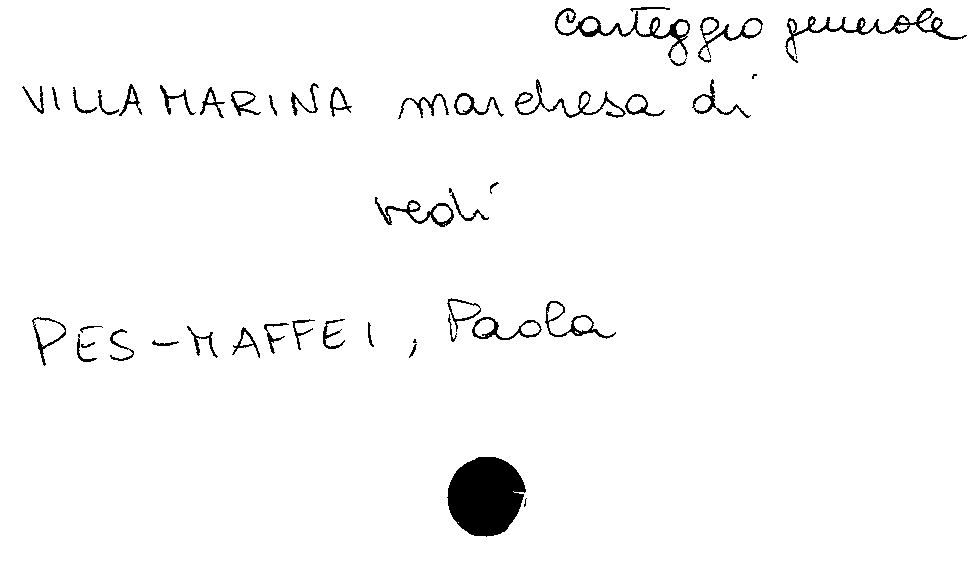 Carteggio generale
VILLAMARINA marchesa di
vedi
PES-MAFFEI, Paola